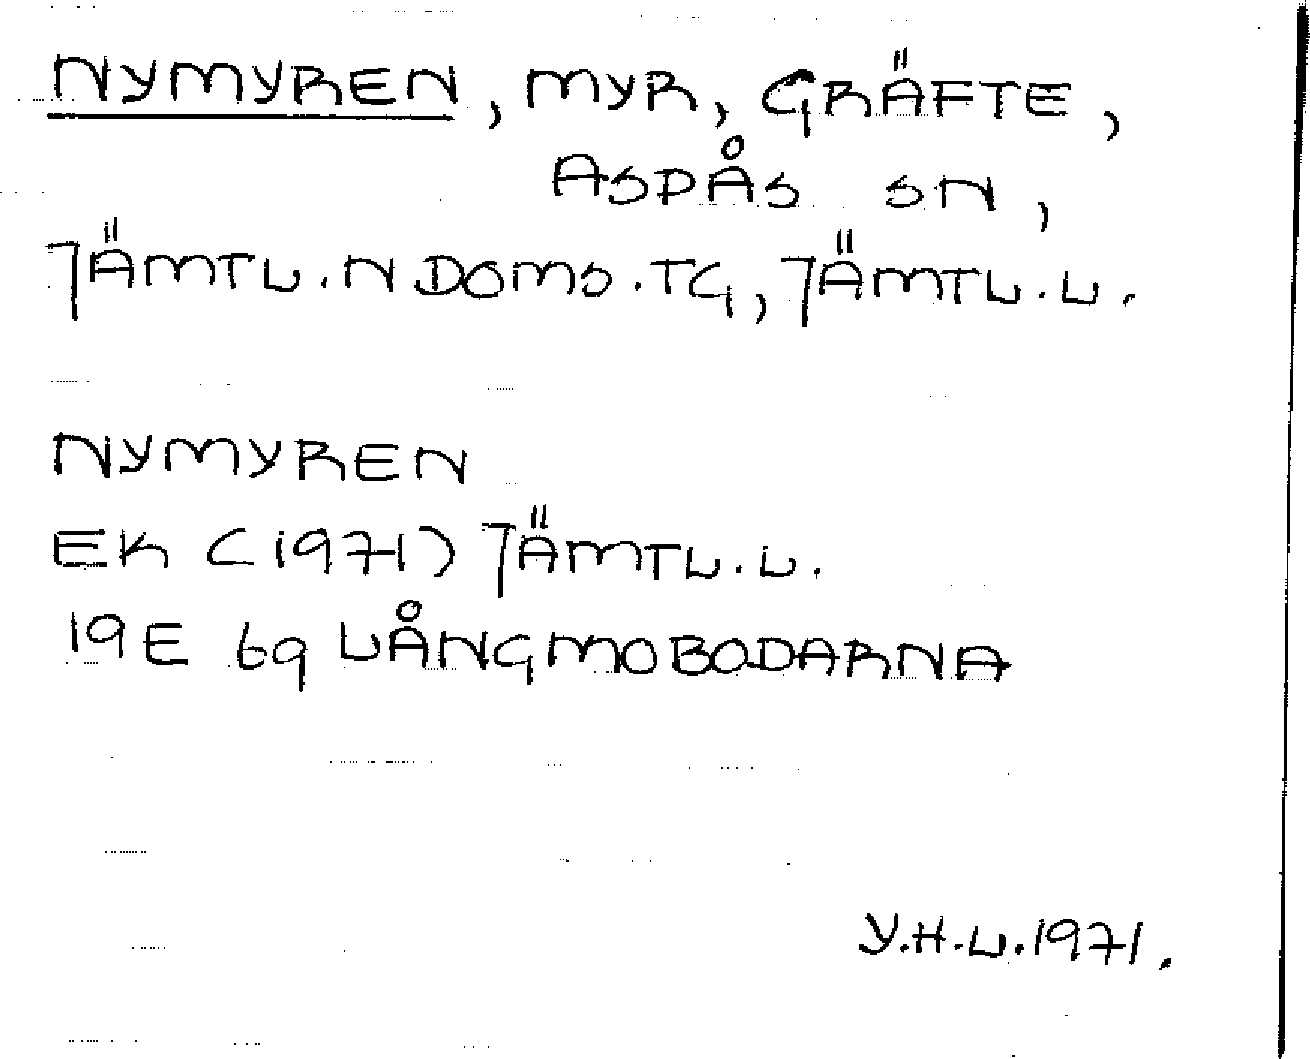 NYMYREN, MYR, GRÄFTE,
ASPÅS SN,
JÄMTL.N DOMS.TG, JÄMTL.L.
NYMYREN
EK (1971) JÄMTL.L.
19E 6g LÅNGMOBODARNA
Y.H.L.1971.